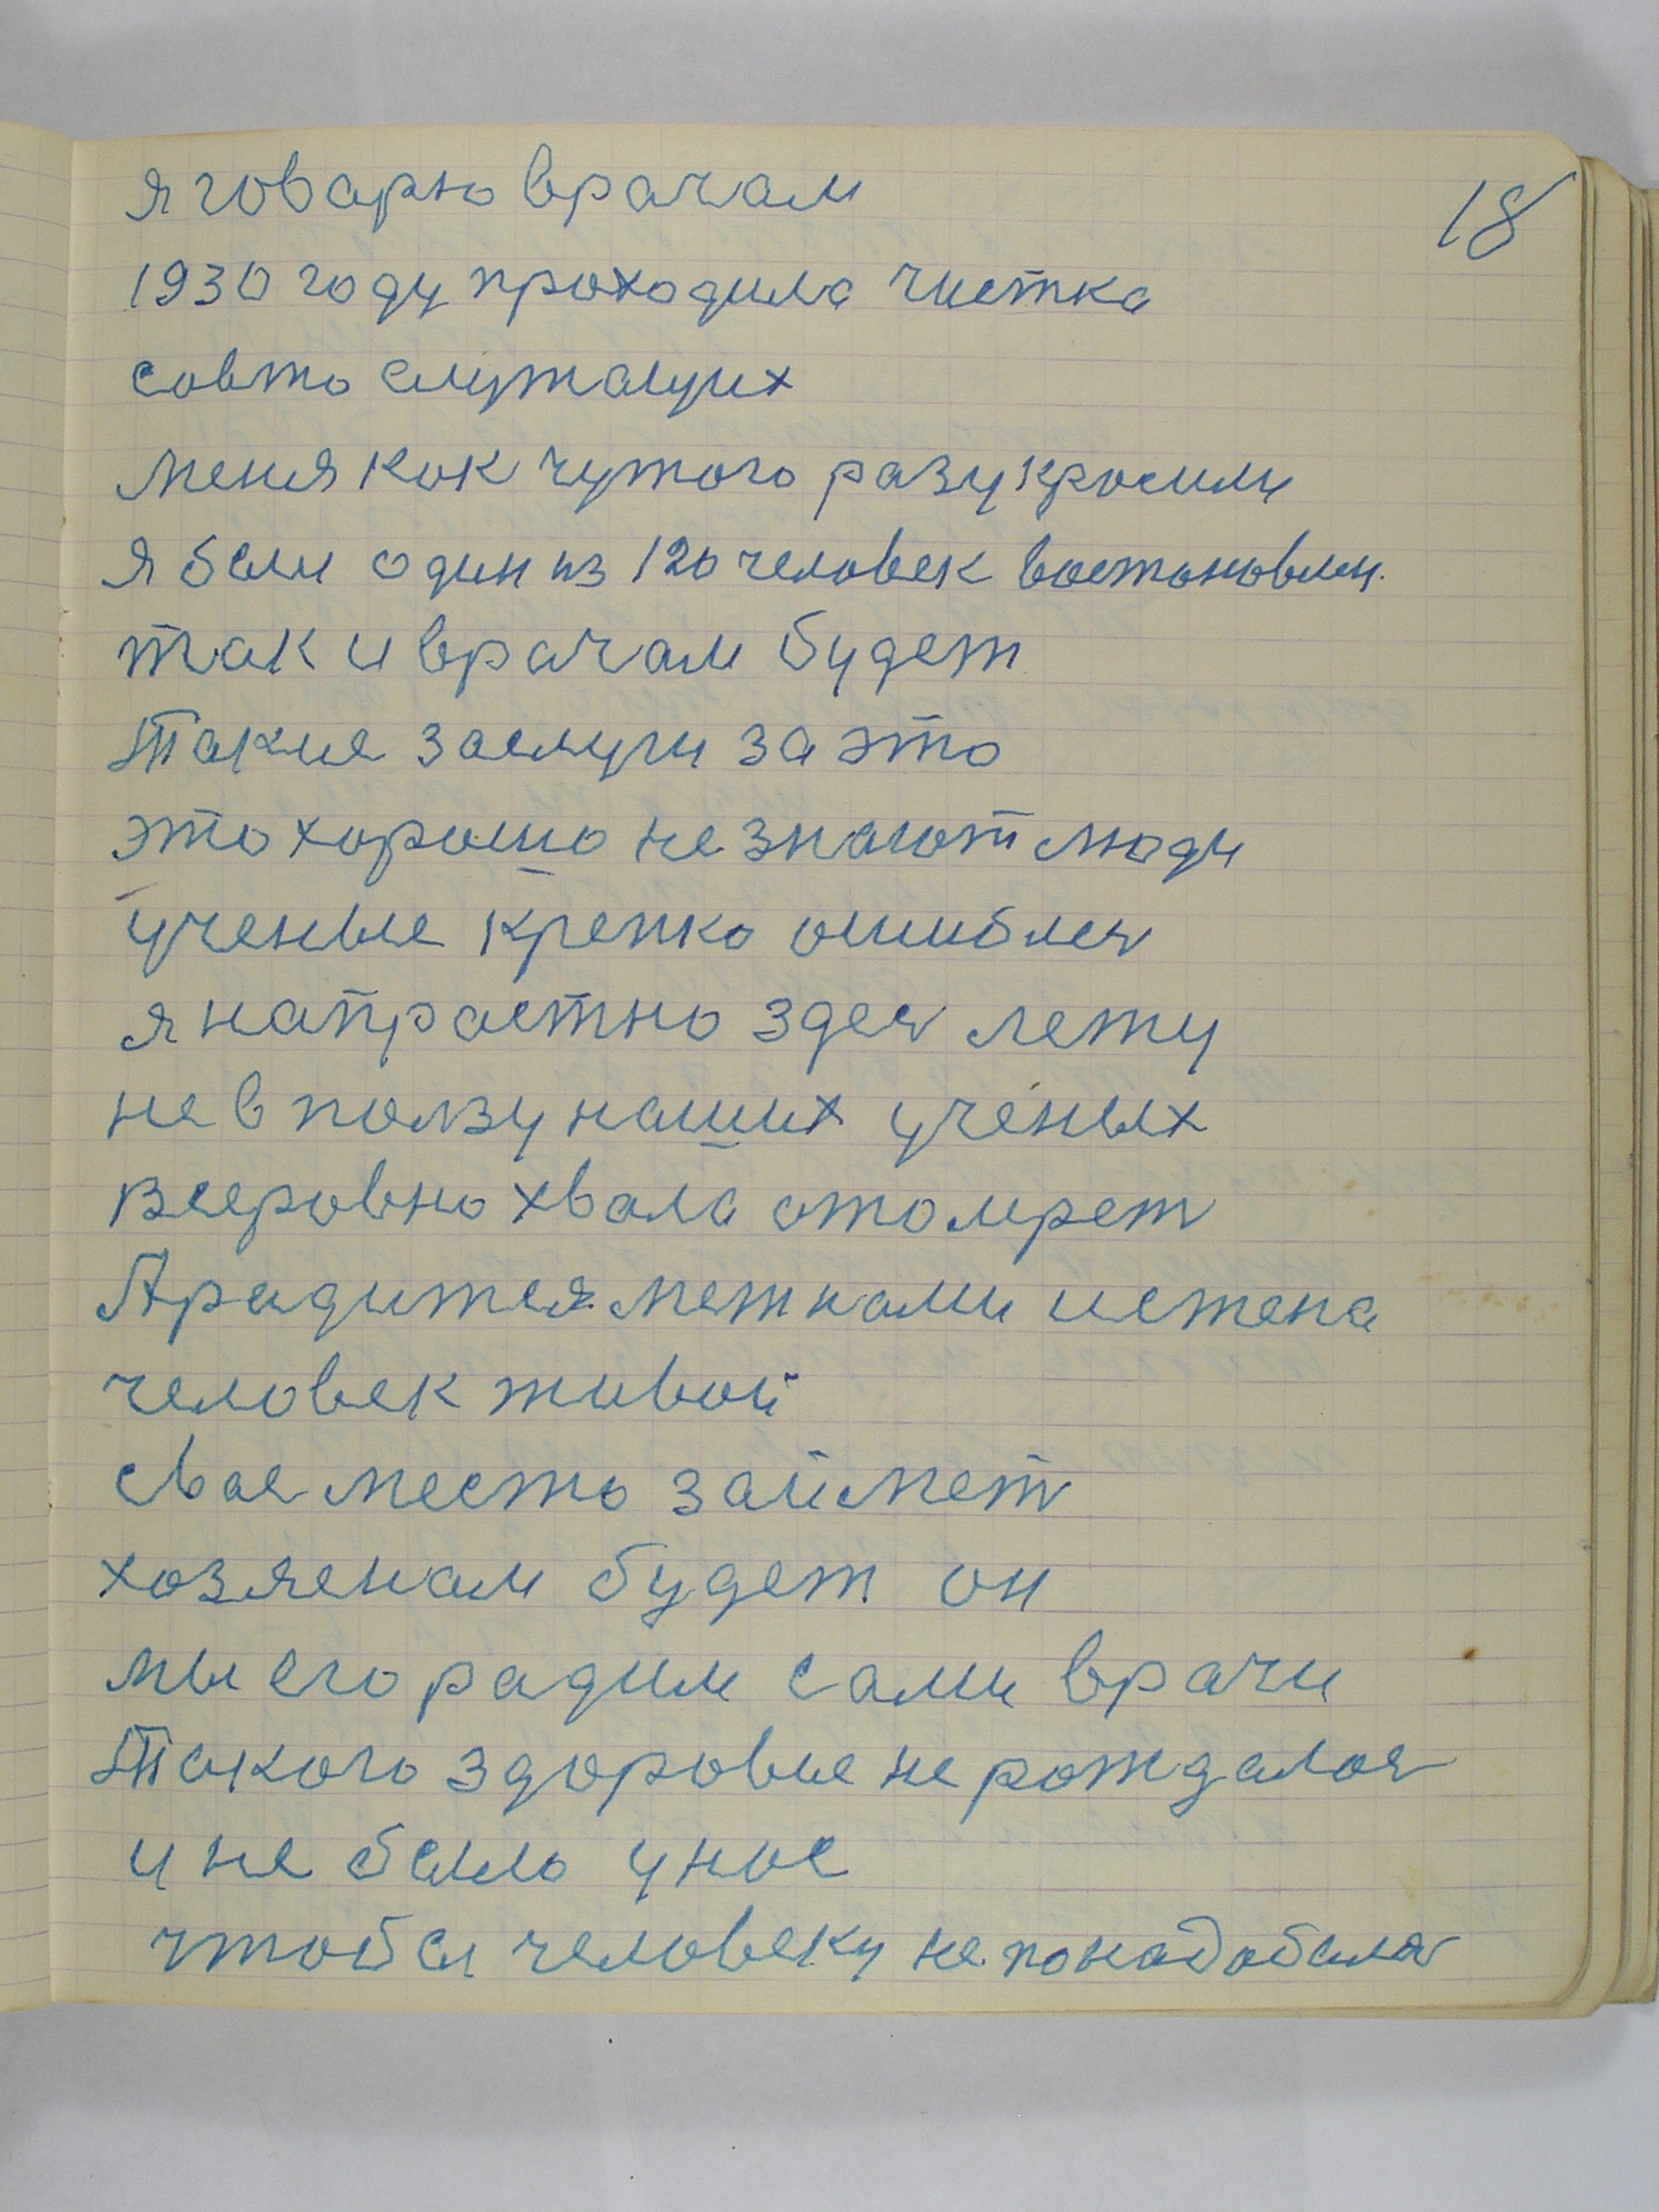 18
я говарю врачам
1930 году проходила чистка
совто служащих
меня как чужого разукросили
я был один из 120 человек востоновлен.
так и врачам будет
Такие заслуги за это
это хорошо не знают люди
ученые крепко ошиблся
я напрастно здеся лежу
не в ползу наших ученых
всеровно хвала отомрет
А радится меж нами истена
человек живой
свае место займет
хозяенам будет он
мы его радили сами врачи
Такого здоровье не рождалося
и не было у нас
чтобы человеку не понадобался